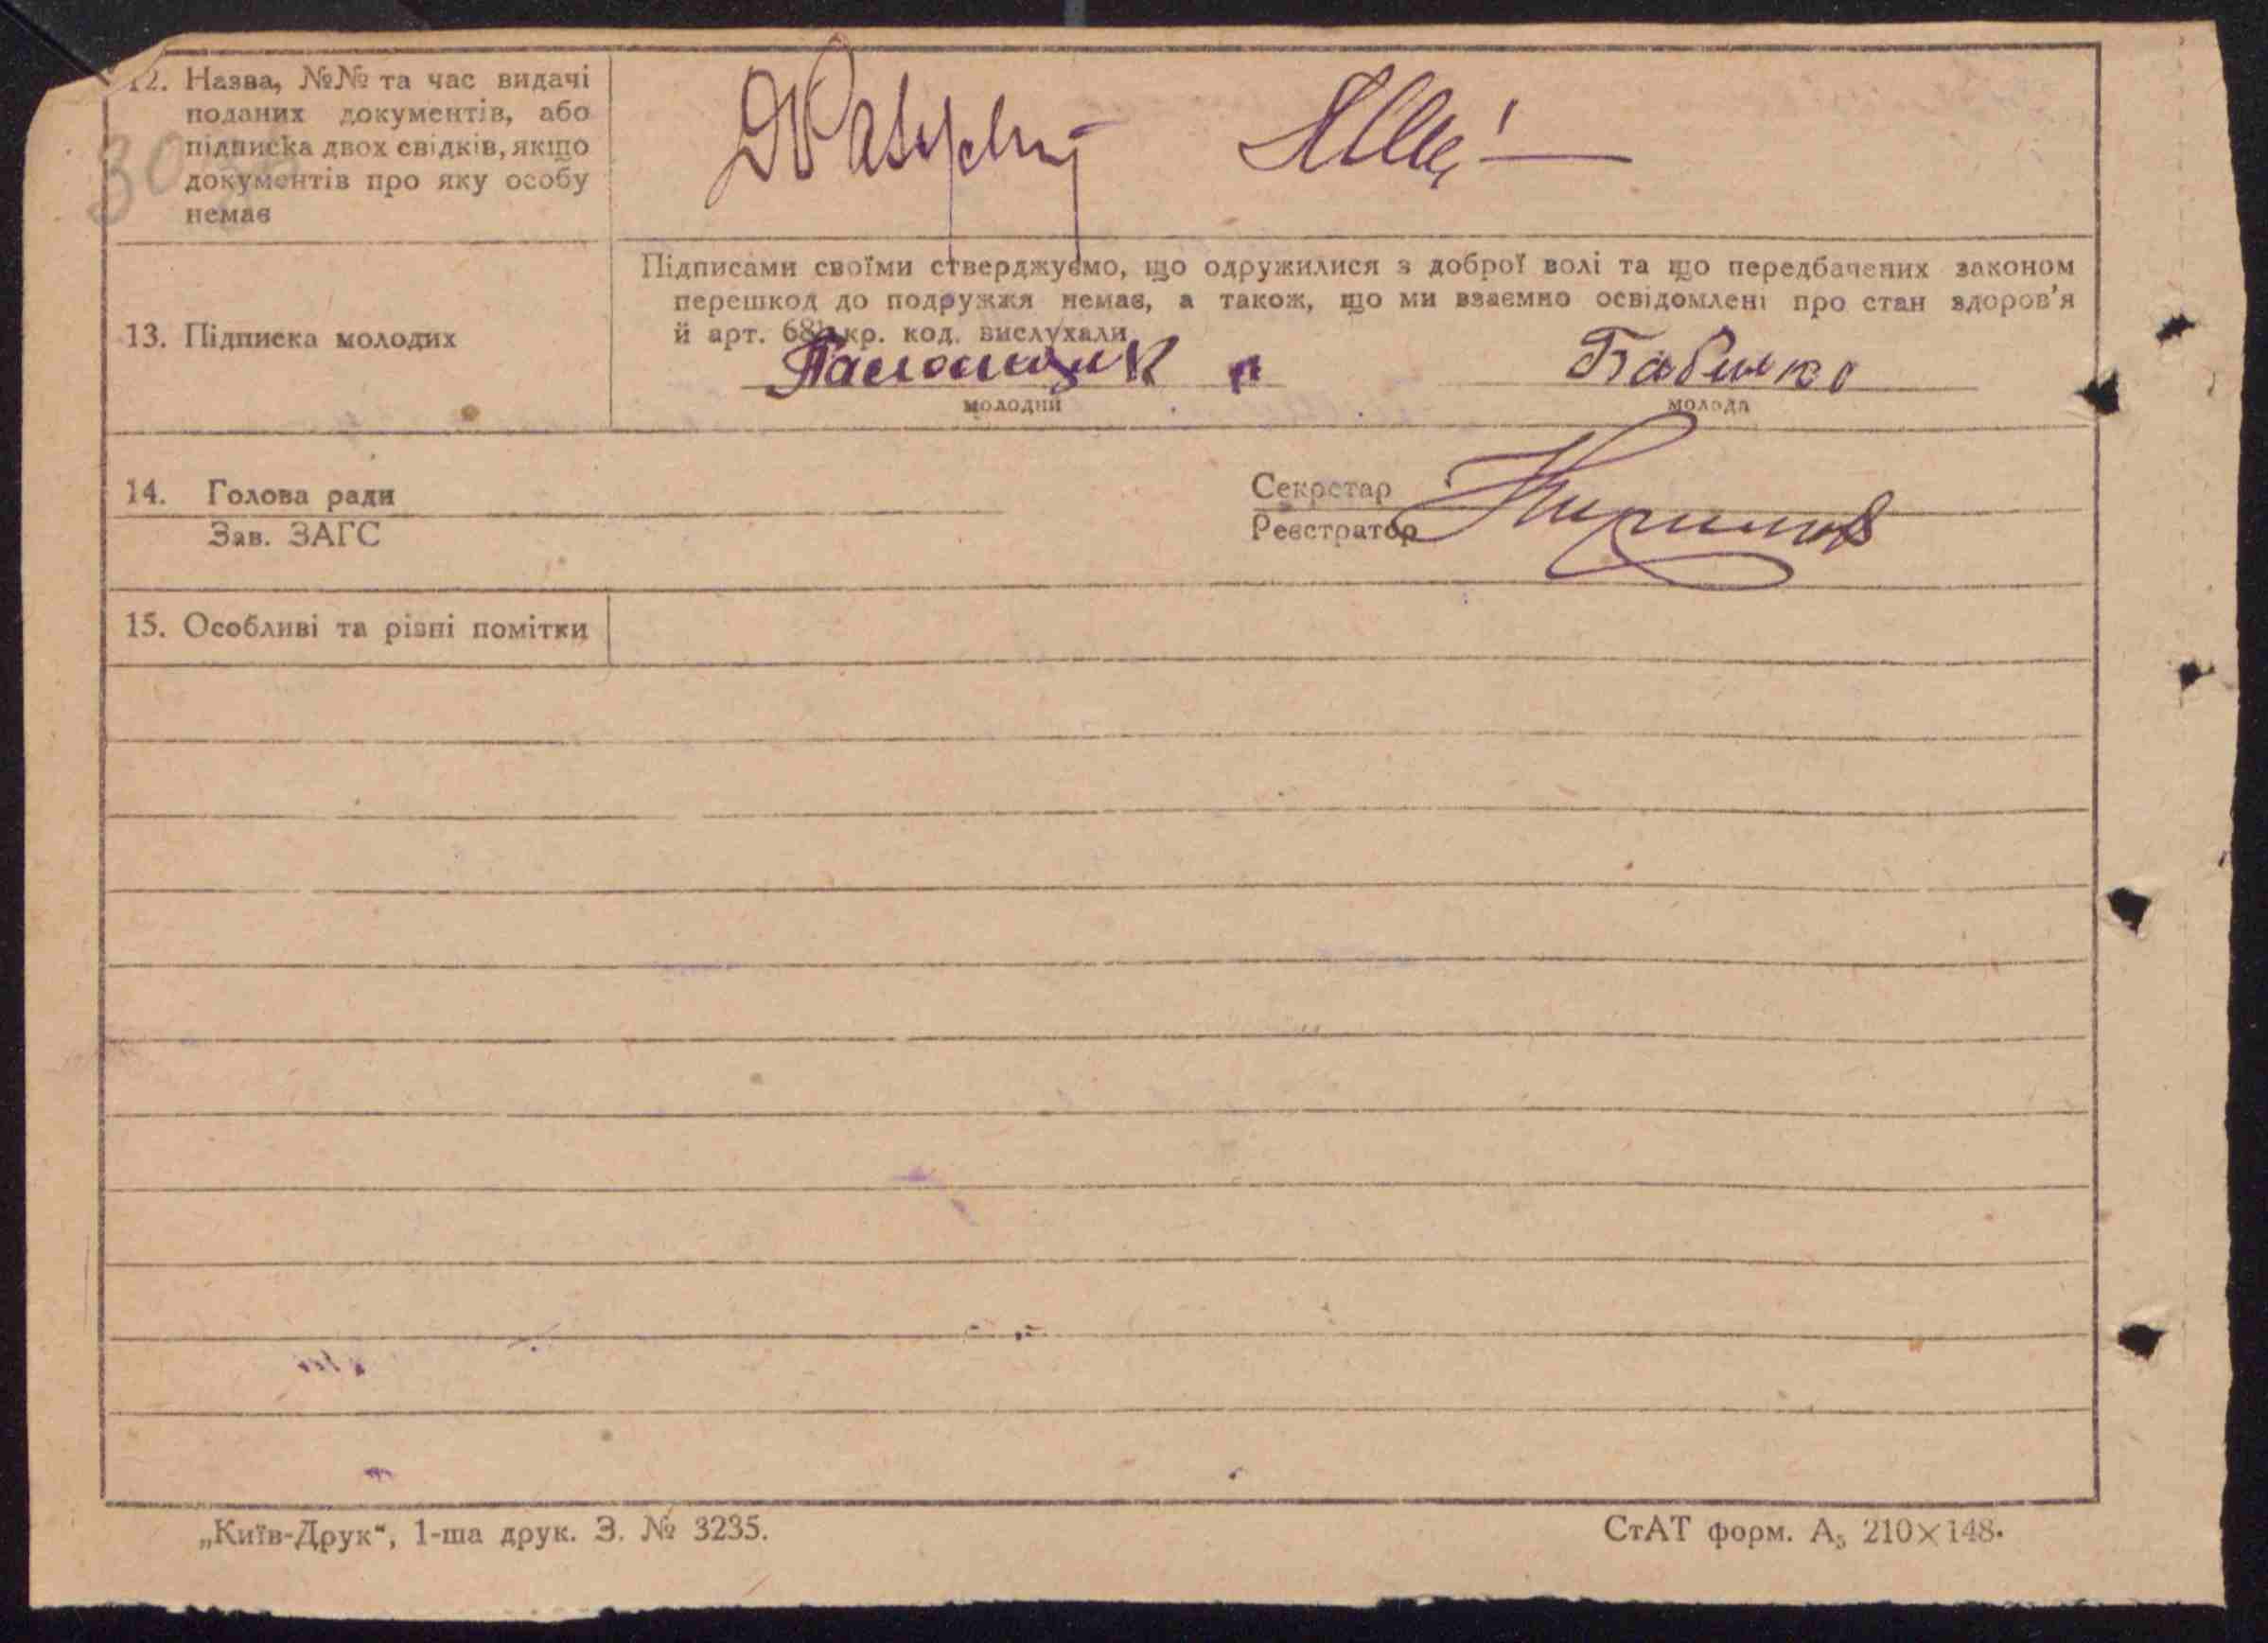 12. Назва, №№ та час видачі
поданих документів, або
підписка двох свідків, якщо
документів про яку особу
немає
30
Підписами своїми стверджуємо, що одружилися з доброї волі та що передбачених законом
перешкод до подружжя немає, а також, що ми взаємно освідомлені про стан здоров'я
й арт. кр. код. вислухали
13. Підписка молодих
Бабенко
молодий
молода
14. Голова ради
Секретар
Зав. ЗАГС
Реєстратор
15. Особливі та різні помітки
„Київ-Друк“, 1-ша друк. З. № 3235.
СтАТ форм. А₅ 210×148.